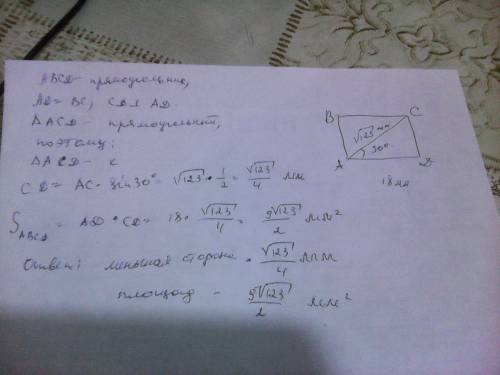 ABCD – прямоугольник,
AD = BC, CD ⊥ AD.
△ACD – прямоугольный,
поэтому:
△ACD – с
CD = AC · sin30° = √123 · 1/2 = √123/4 мм
S ABCD = AD · CD = 18 · √123/4 = 9√123/2 мм²
Ответ: меньшая сторона · √123/4 мм
площадь – 9√123/2 мм²
B C
√123 мм
30°
A D
18 мм